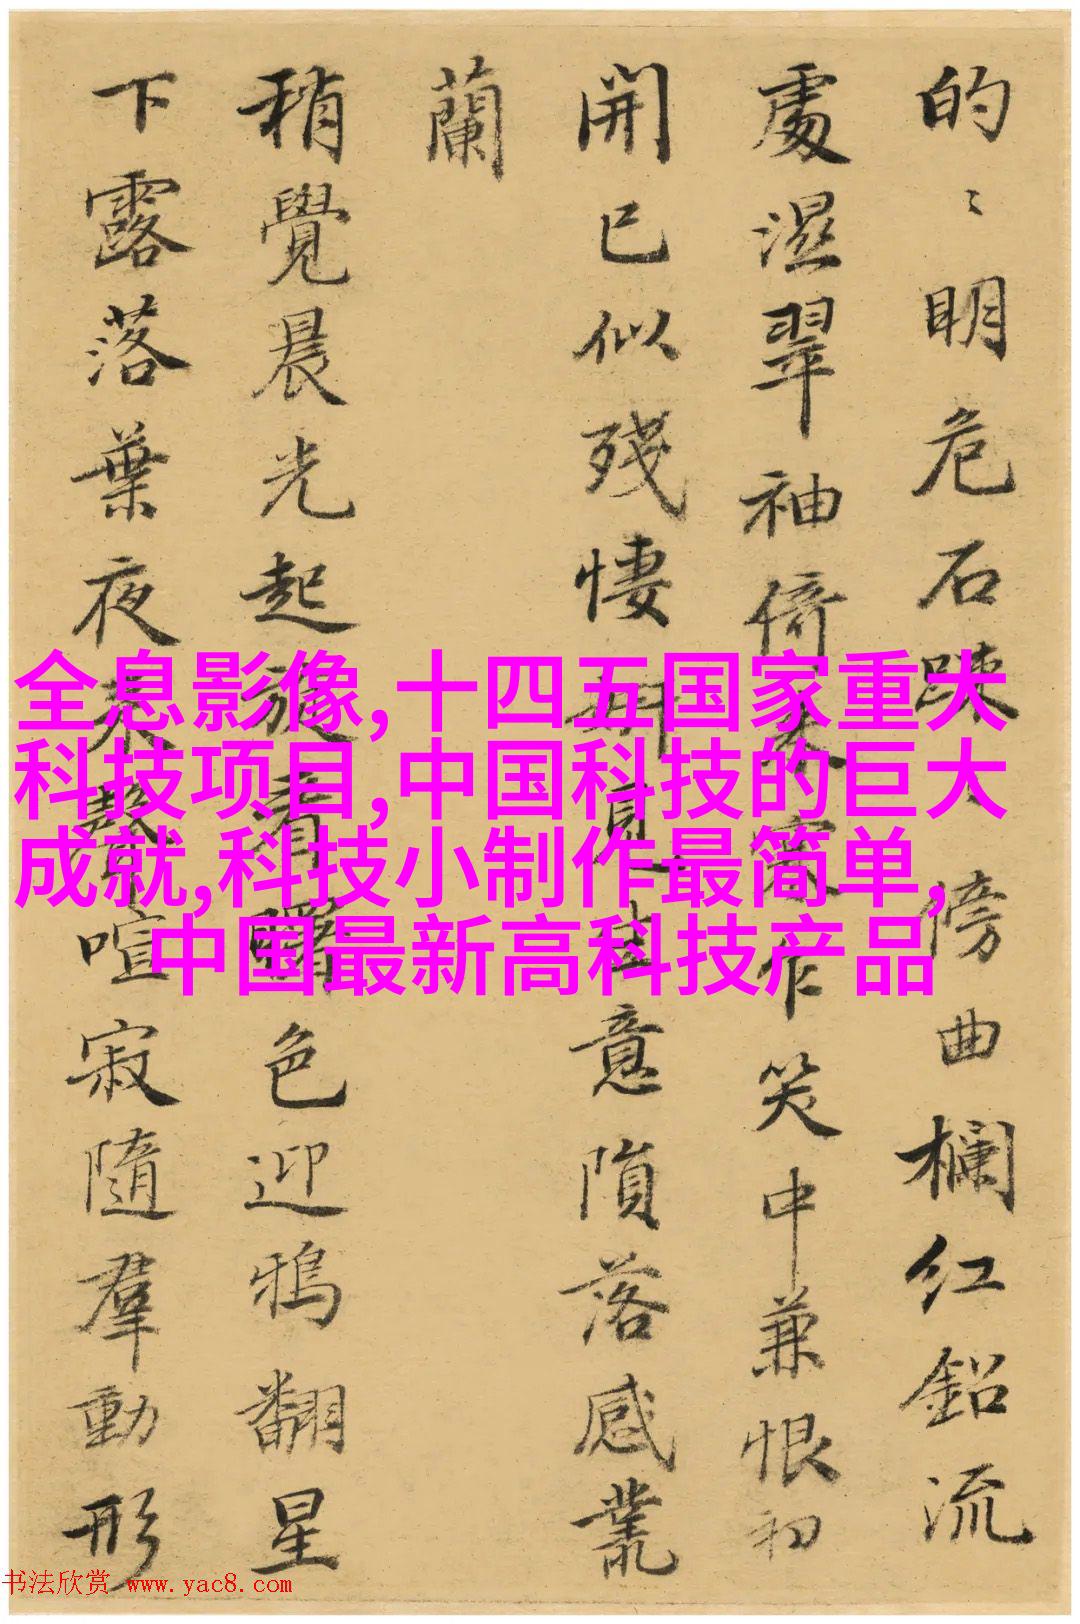 的〻明危石踈〻傍曲欄红鉛流
處濕翠袖倚來寒乍笑中兼恨初
開已似殘悽見生意隕落感叢
蘭
稍覺晨光起旋看曙色迎鴉翻星
下露落葉夜來聲喧寂隨羣動形
全息影像,十四五国家重大
科技项目,中国科技的巨大
成就,科技小制作最简单,
中国最新高科技产品
书法欣赏 www.yac8.com